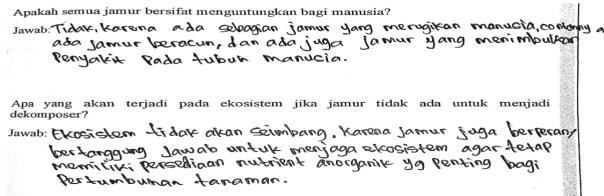 Apakah semua jamur bersifat menguntungkan bagi manusia?
Jawab: Tidak, karena ada sebagian jamur yang merugikan manusia, contohnya
ada jamur beracun, dan ada juga jamur yang menimbulkan
Penyakit Pada tubuh manusia.
Apa yang akan terjadi pada ekosistem jika jamur tidak ada untuk menjadi
dekomposer?
Jawab: Ekosistem tidak akan seimbang, karena jamur juga berperan/
bertanggung jawab untuk menjaga ekosistem agar tetap
memiliki persediaan nutrient anorganik yg penting bagi
Pertumbuhan tanaman.